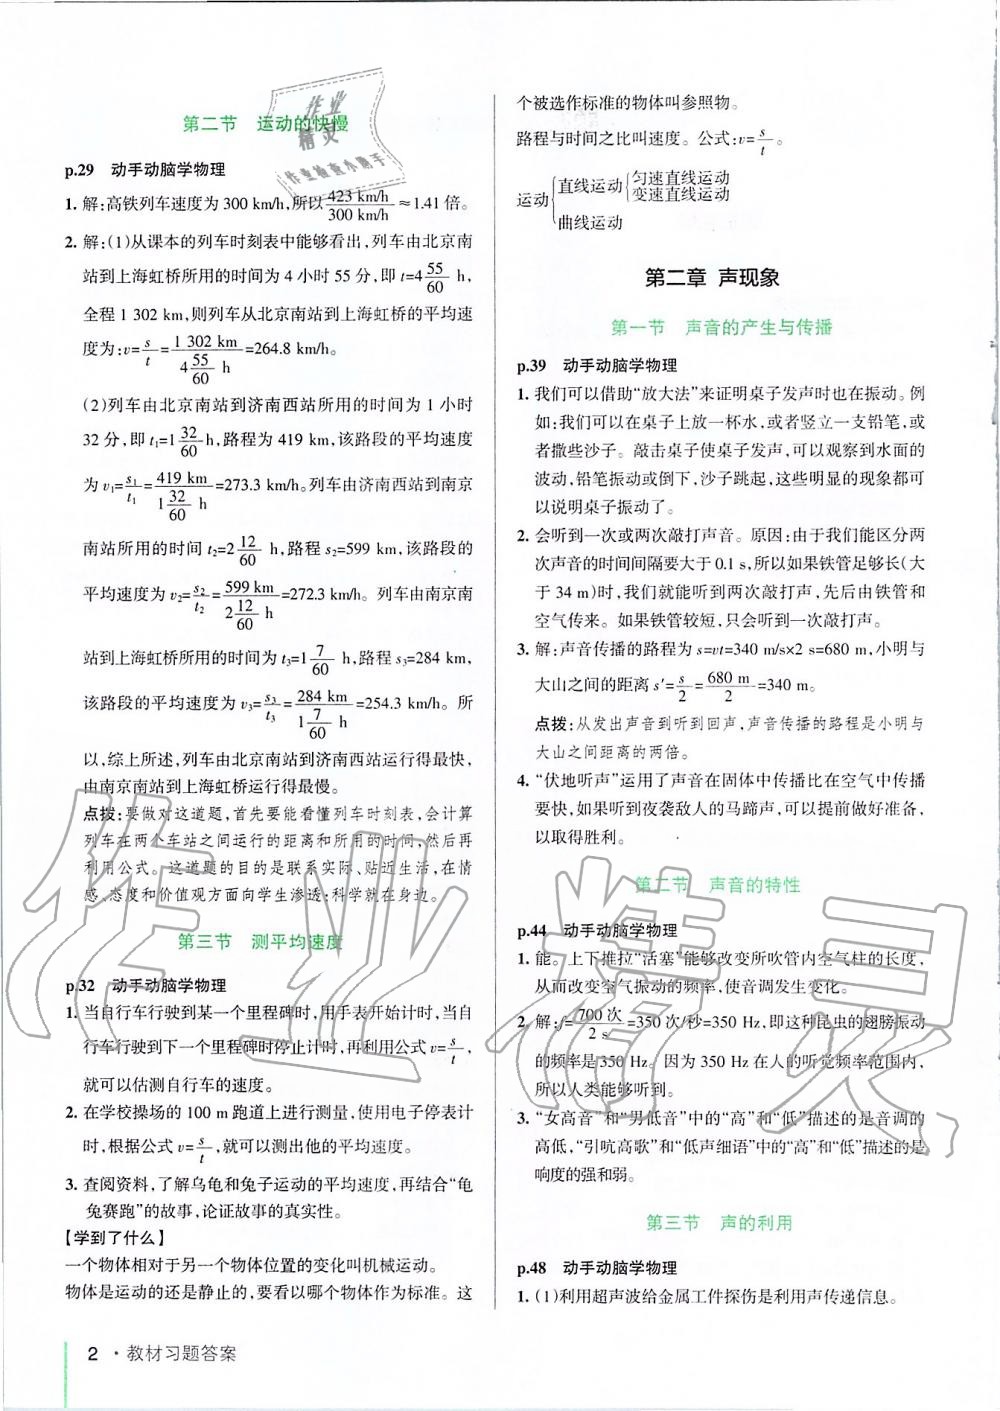 第二节 运动的快慢
p.29 动手动脑学物理
1. 解:高铁列车速度为 300 km/h,所以 423 km/h / 300 km/h ≈1.41 倍。
2. 解:(1)从课本的列车时刻表中能够看出,列车由北京南
站到上海虹桥所用的时间为 4 小时 55 分,即 t=4 55/60 h,
全程 1 302 km,则列车从北京南站到上海虹桥的平均速
度为:v= s/t = 1 302 km / 4 55/60 h =264.8 km/h。
(2)列车由北京南站到济南西站所用的时间为 1 小时
32 分,即 t₁=1 32/60 h,路程为 419 km,该路段的平均速度
为 v₁= s₁/t₁ = 419 km / 1 32/60 h =273.3 km/h。列车由济南西站到南京
南站所用的时间 t₂=2 12/60 h,路程 s₂=599 km,该路段的
平均速度为 v₂= s₂/t₂ = 599 km / 2 12/60 h =272.3 km/h。列车由南京南
站到上海虹桥所用的时间为 t₃=1 7/60 h,路程 s₃=284 km,
该路段的平均速度为 v₃= s₃/t₃ = 284 km / 1 7/60 h =254.3 km/h。所
以,综上所述,列车由北京南站到济南西站运行得最快,
由南京南站到上海虹桥运行得最慢。
点拨:要做对这道题,首先要能看懂列车时刻表,会计算
列车在两个车站之间运行的距离和所用的时间,然后再
利用公式。这道题的目的是联系实际、贴近生活,在情
感、态度和价值观方面向学生渗透:科学就在身边。
第三节 测平均速度
p.32 动手动脑学物理
1. 当自行车行驶到某一个里程碑时,用手表开始计时,当自
行车行驶到下一个里程碑时停止计时,再利用公式 v= s/t,
就可以估测自行车的速度。
2. 在学校操场的 100 m 跑道上进行测量,使用电子停表计
时,根据公式 v= s/t,就可以测出他的平均速度。
3. 查阅资料,了解乌龟和兔子运动的平均速度,再结合“龟
兔赛跑”的故事,论证故事的真实性。
【学到了什么】
一个物体相对于另一个物体位置的变化叫机械运动。
物体是运动的还是静止的,要看以哪个物体作为标准。这
个被选作标准的物体叫参照物。
路程与时间之比叫速度。公式:v= s/t。
运动{直线运动{匀速直线运动
变速直线运动
曲线运动
第二章 声现象
第一节 声音的产生与传播
p.39 动手动脑学物理
1. 我们可以借助“放大法”来证明桌子发声时也在振动。例
如:我们可以在桌子上放一杯水,或者竖立一支铅笔,或
者撒些沙子。敲击桌子使桌子发声,可以观察到水面的
波动,铅笔振动或倒下,沙子跳起,这些明显的现象都可
以说明桌子振动了。
2. 会听到一次或两次敲打声音。原因:由于我们能区分两
次声音的时间间隔要大于 0.1 s,所以如果铁管足够长(大
于 34 m)时,我们就能听到两次敲打声,先后由铁管和
空气传来。如果铁管较短,只会听到一次敲打声。
3. 解:声音传播的路程为 s=vt=340 m/s×2 s=680 m,小明与
大山之间的距离 s′= s/2 = 680 m / 2 =340 m。
点拨:从发出声音到听到回声,声音传播的路程是小明与
大山之间距离的两倍。
4. “伏地听声”运用了声音在固体中传播比在空气中传播
要快,如果听到夜袭敌人的马蹄声,可以提前做好准备,
以取得胜利。
第二节 声音的特性
p.44 动手动脑学物理
1. 能。上下推拉“活塞”能够改变所吹管内空气柱的长度,
从而改变空气振动的频率,使音调发生变化。
2. 解:f= 700 次 / 2 s =350 次/秒=350 Hz,即这种昆虫的翅膀振动
的频率是 350 Hz。因为 350 Hz 在人的听觉频率范围内,
所以人类能够听到。
3. “女高音”和“男低音”中的“高”和“低”描述的是音调的
高低,“引吭高歌”和“低声细语”中的“高”和“低”描述的是
响度的强和弱。
第三节 声的利用
p.48 动手动脑学物理
1. (1)利用超声波给金属工件探伤是利用声传递信息。
2 · 教材习题答案
作业
精灵
作业检查小助手
作业精灵